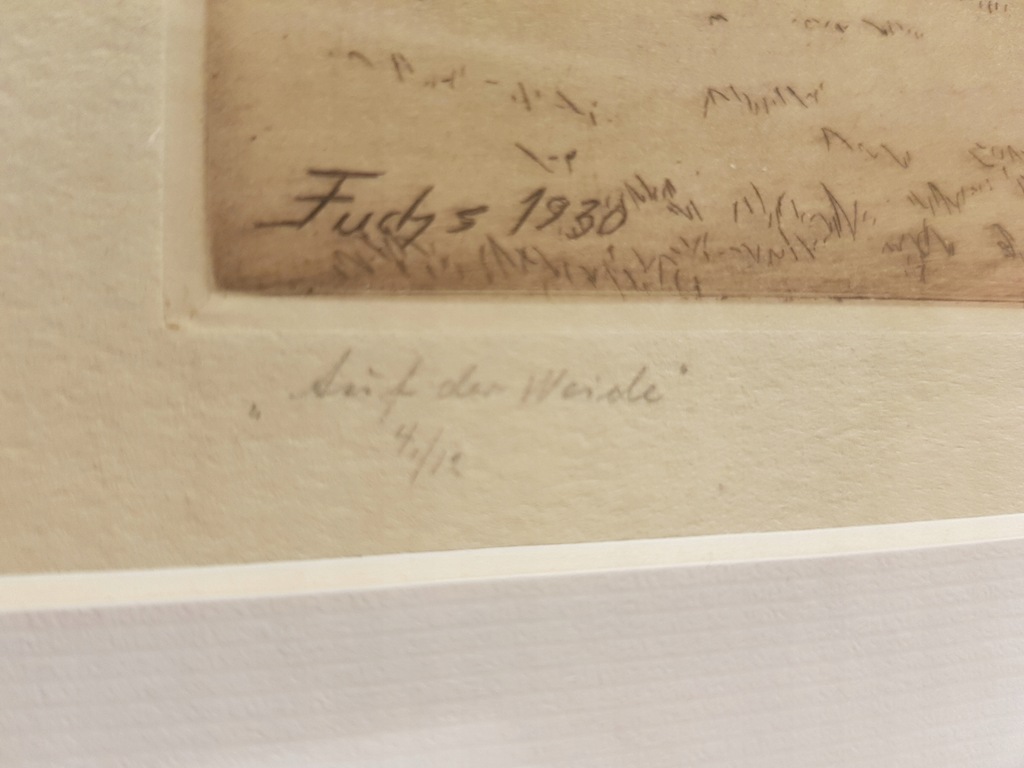 Fuchs 1930
„Auf der Weide"
4/12